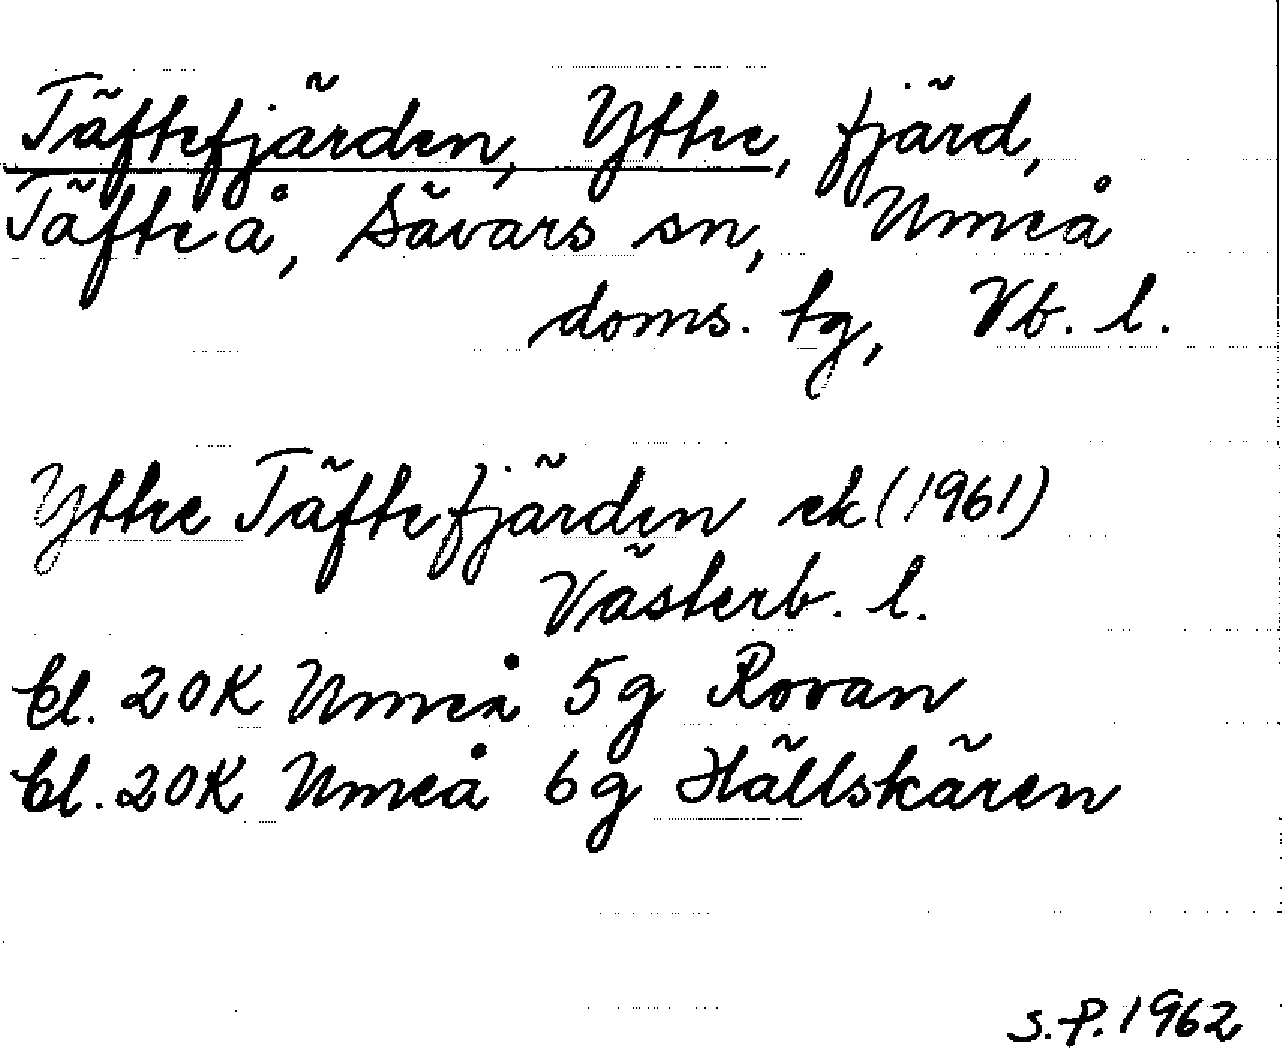 Täftefjärden, Yttre, fjärd,
Täfteå, Sävars sn, Umeå
doms. tg, Vb. l.
Yttre Täftefjärden ek (1961)
Västerb. l.
bl. 20K Umeå 5g Rovan
bl. 20K Umeå 6g Hällskären
S.P. 1962